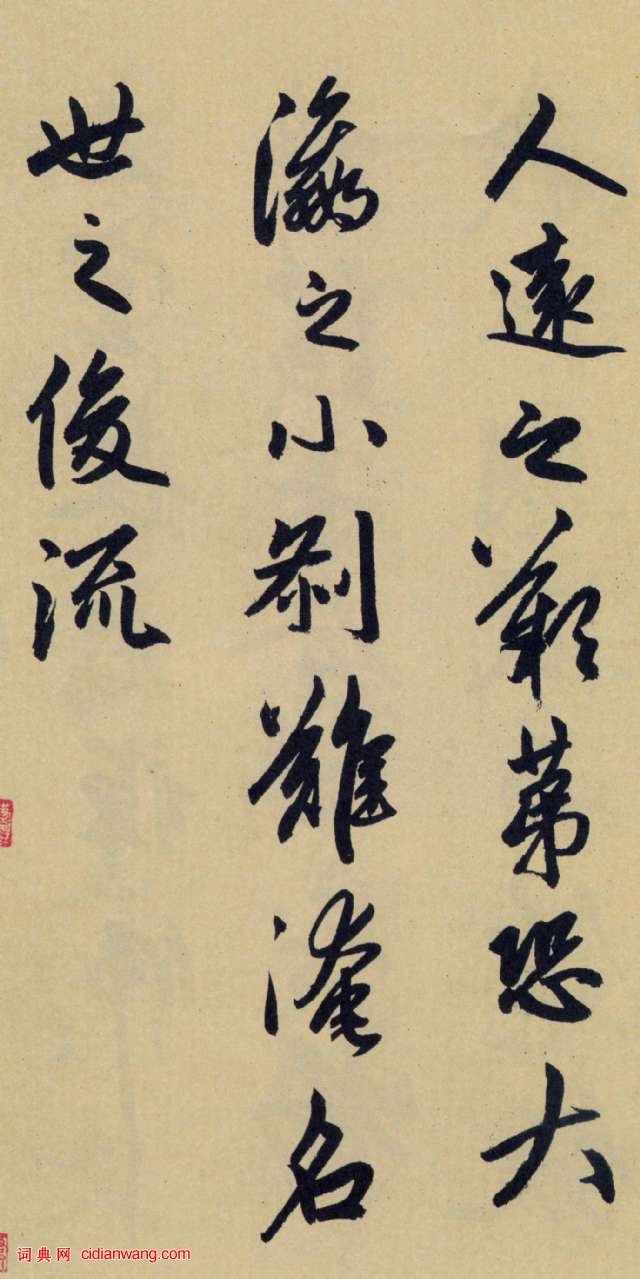 人遠之歎第恐大
瀛之小刹難淹名
世之俊流
词典网 cidianwang.com